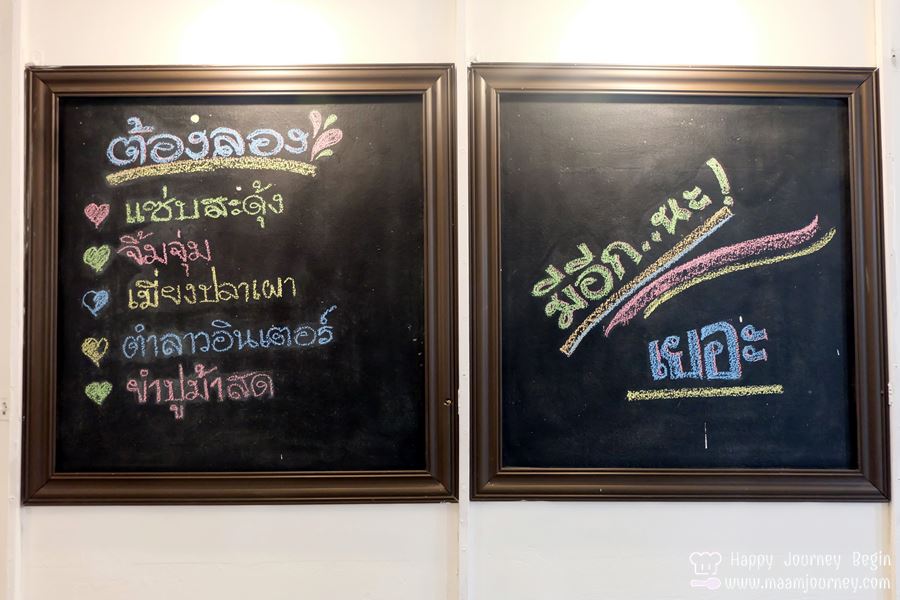 ต้องลอง
แซ่บสะดุ้ง
จิ้มจุ่ม
เมี่ยงปลาเผา
ตำลาวอินเตอร์
ยำปูม้าสด
มีอีก..นะ!
เยอะ
Happy Journey Begin
www.maamjourney.com